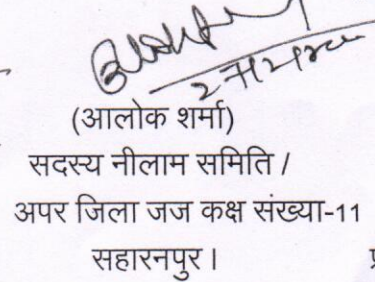 (आलोक शर्मा)
सदस्य नीलाम समिति /
अपर जिला जज कक्ष संख्या-11
सहारनपुर ।